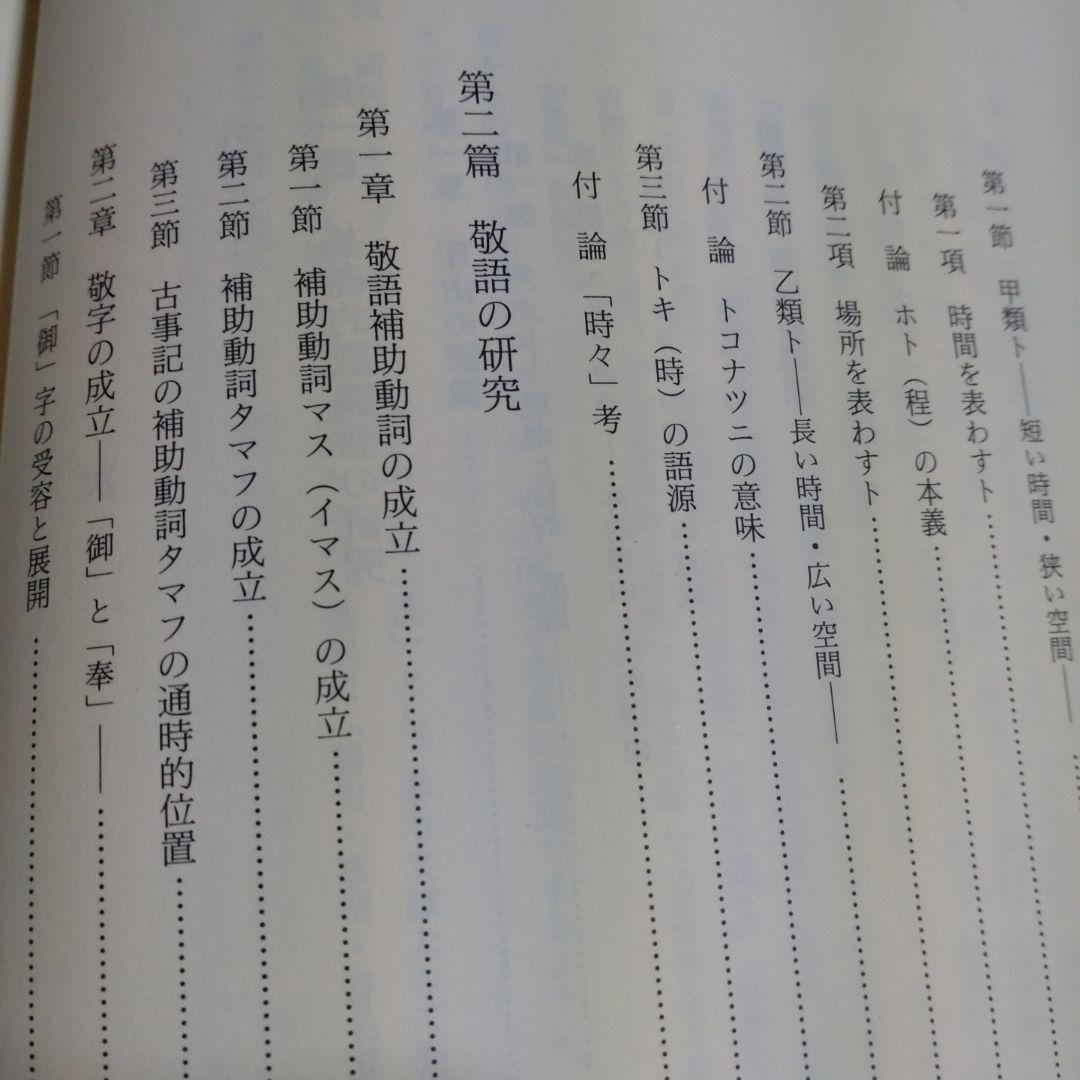 第一節 甲類ト――短い時間・狭い空間――……
第一項 時間を表わすト……
付論 ホト（程）の本義……
第二項 場所を表わすト……
第二節 乙類ト――長い時間・広い空間――……
付論 トコナツニの意味……
第三節 トキ（時）の語源……
付論 「時々」考……
第二篇 敬語の研究
第一章 敬語補助動詞の成立……
第一節 補助動詞マス（イマス）の成立……
第二節 補助動詞タマフの成立……
第三節 古事記の補助動詞タマフの通時的位置……
第二章 敬字の成立――「御」と「奉」――……
第一節 「御」字の受容と展開……